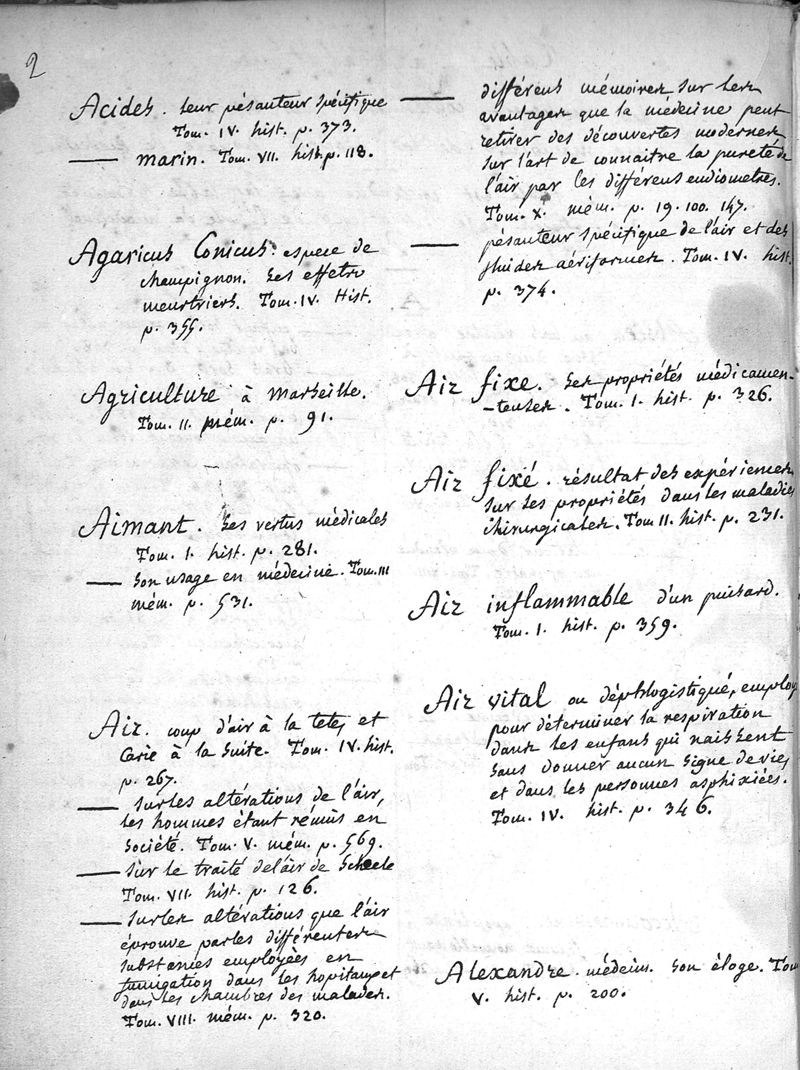 2
Acides. leur pésanteur spécifique
Tom. IV. hist. p. 373.
— marin. Tom. VII. hist. p. 118.
Agaricus Conicus: espece de
champignon. Ses effets
meurtriers. Tom. IV. Hist.
p. 355.
Agriculture à Marseille.
Tom. II. mém. p. 91.
Aimant. Ses vertus médicales
Tom. I. hist. p. 281.
— Son usage en médecine. Tom. III
mém. p. 531.
Air. coup d'air à la tete, et
Carie à la Suite. Tom. IV. hist.
p. 267.
— Sur les altérations de l'air,
les hommes étant réunis en
Société. Tom. V. mém. p. 569.
— Sur le traité de l'air de Scheele
Tom. VII. hist. p. 126.
— Sur les altérations que l'air
éprouve par les différentes
substances employées en
fumigation dans les hopitaux et
dans les chambres des malades.
Tom. VIII. mém. p. 320.
— différens mémoires sur les
avantages que la médecine peut
retirer des découvertes modernes
sur l'art de connaitre la pureté de
l'air par les différens eudiometres.
Tom. X. mém. p. 19. 100. 147.
— pésanteur spécifique de l'air et des
fluides aériformes. Tom. IV. hist.
p. 374.
Air fixe. Ses propriétés médicamen-
-teuses. Tom. I. hist. p. 326.
Air fixé. résultat des expériences
sur les propriétés dans les maladies
chirurgicales. Tom II. hist. p. 231.
Air inflammable d'un puisard.
Tom. I. hist. p. 359.
Air vital ou déphlogistiqué, employ
pour déterminer la respiration
dans les enfans qui naissent
sans donner aucun signe de vie,
et dans les personnes asphixiées.
Tom. IV. hist. p. 346.
Alexandre. médecin. Son éloge. Tom
V. hist. p. 200.